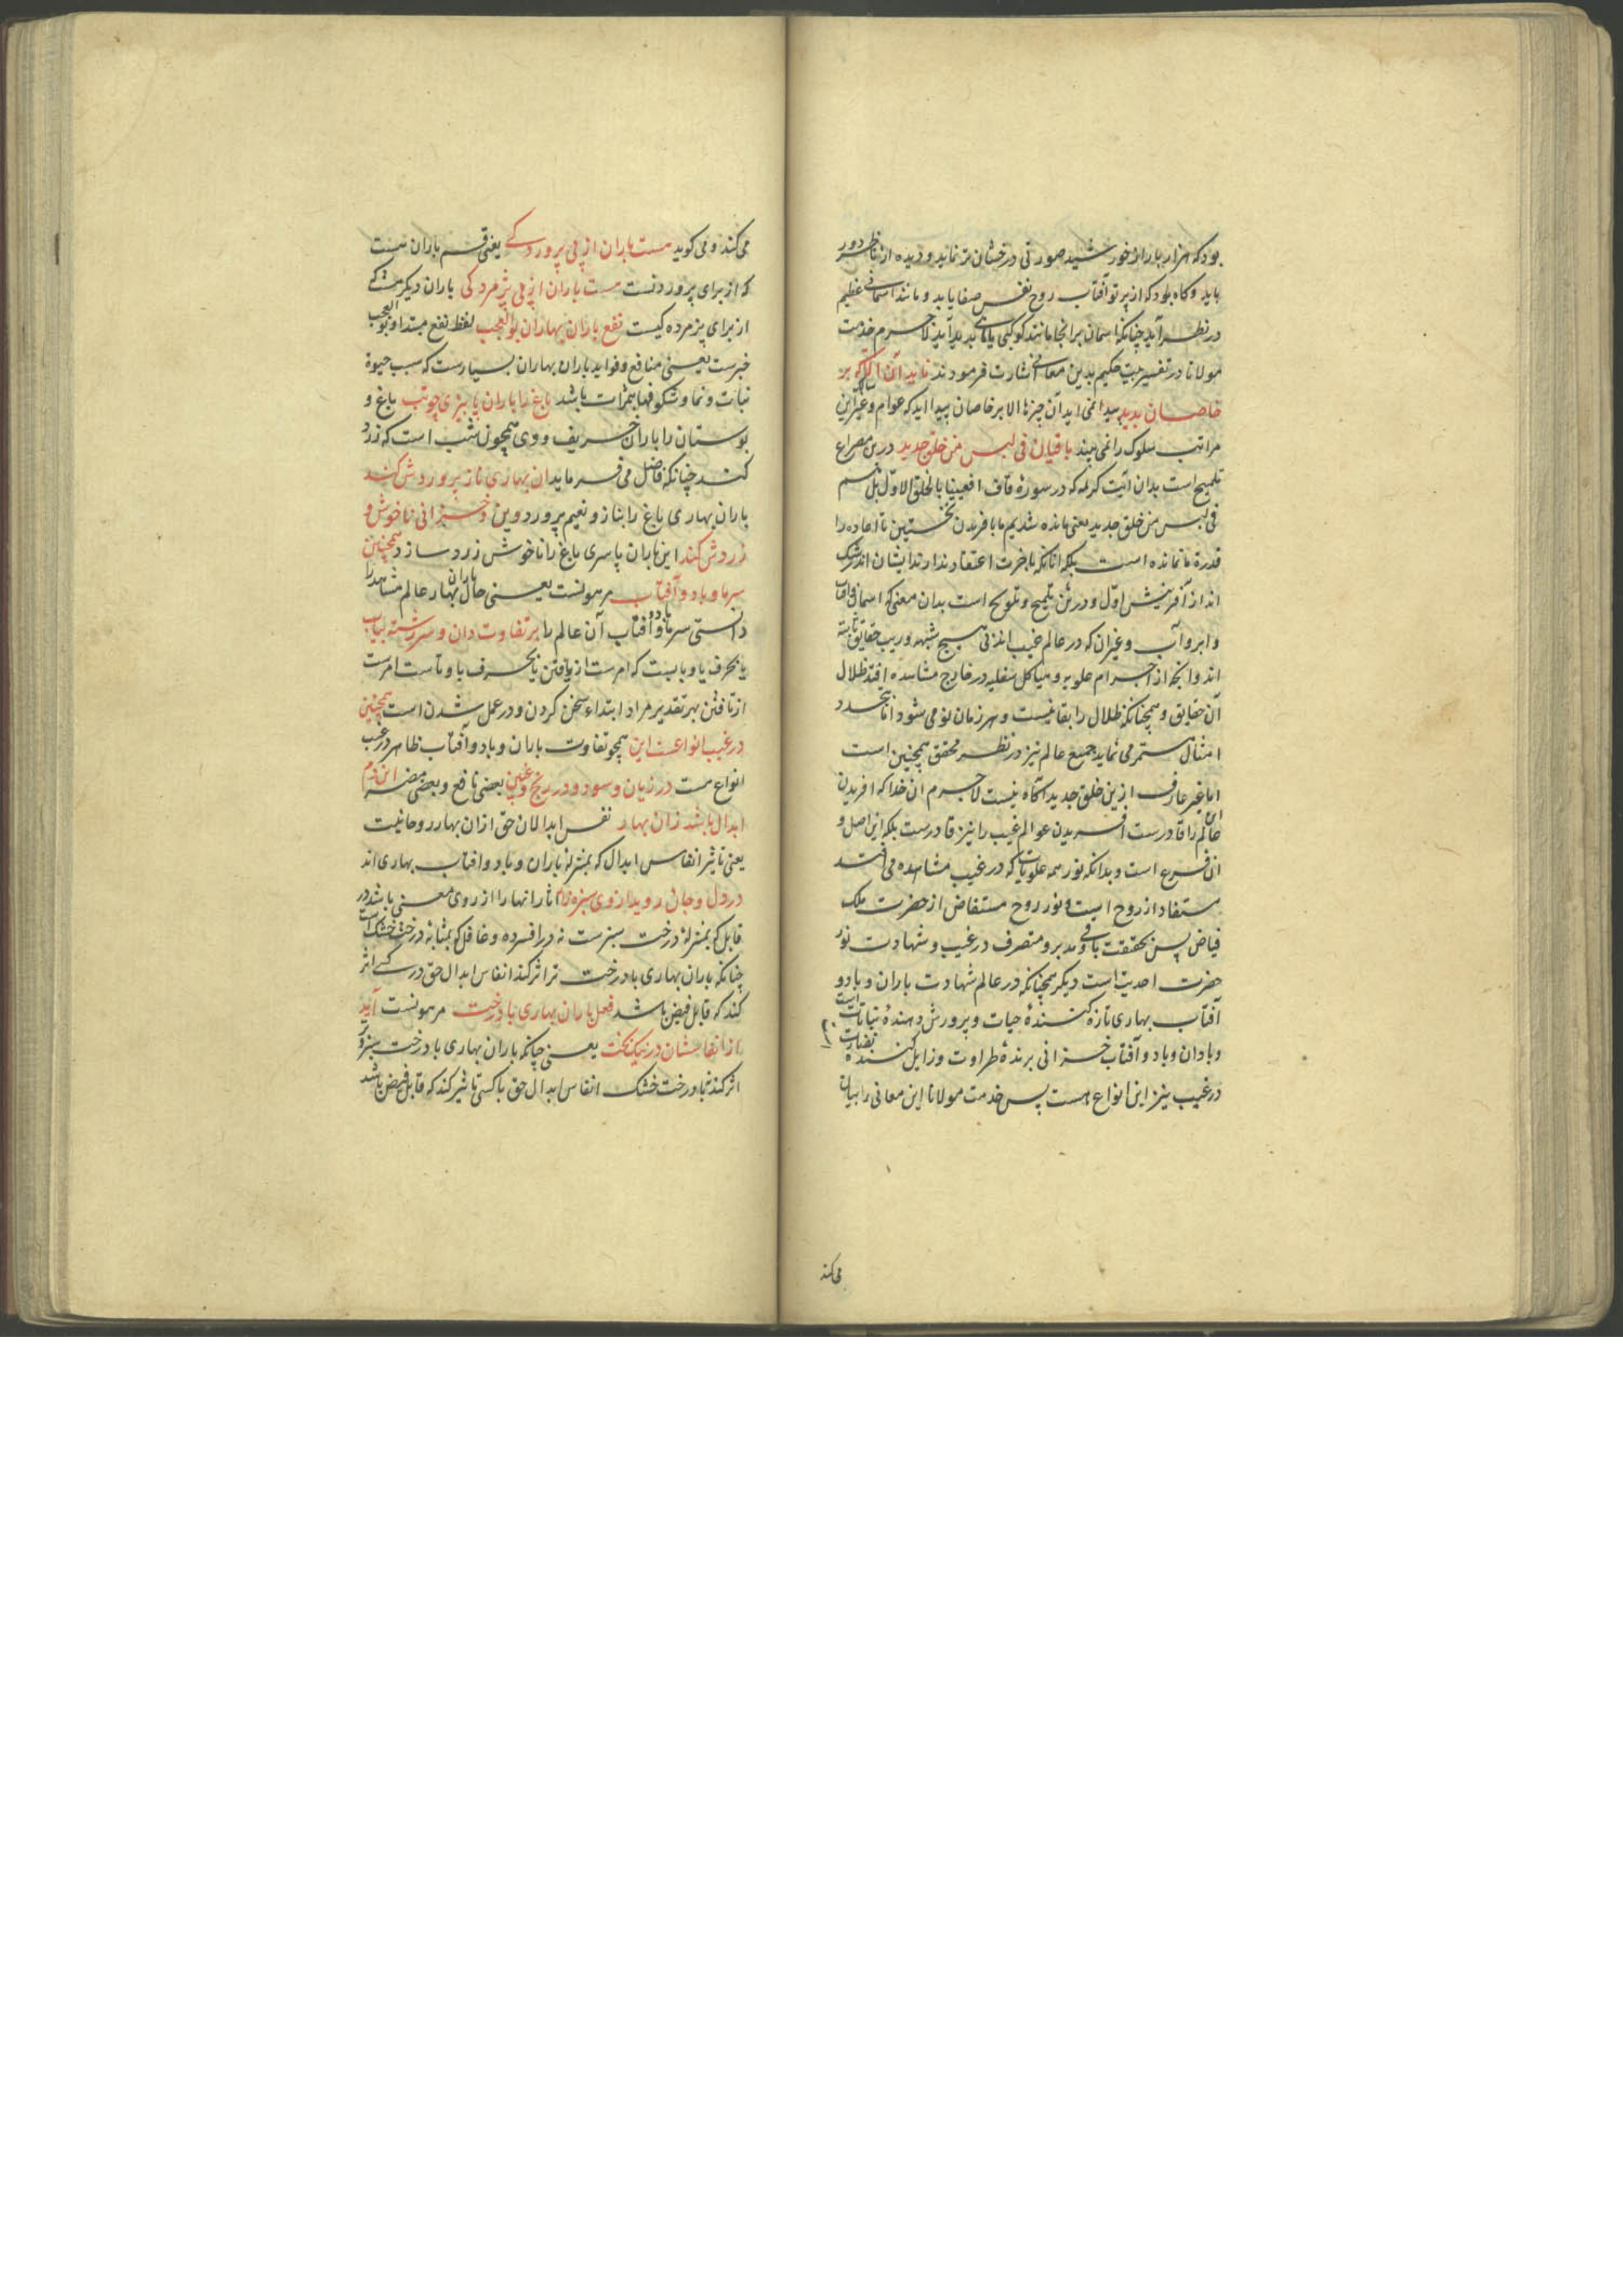 بود که هزار بار از خورشید صورتی درخشان تر نماید و دیده از ناظر دور
باید و کاه بود که از پرتو آفتاب روح نفس صفا یابد و مانند آسمانی عظیم
در نظر آید چنانکه اسمان بر انجا مانند کوکبی یا ماهی بدید آید لاجرم خدمت
مولانا در تفسیر بیت حکیم بدین معانی اشارت فرمودند ناید آن الا که بر
خاصان بدید پیدا نمی اید آن چیزها الا بر خاصان پیدا اید که عوام و غیر این
مراتب سلوک را نمی بیند باقیان فی لبس من خلق جدید درین مصراع
تلمیح است بدان آیت کریمه که در سوره قاف افعیینا بالخلق الاول بل هم
فی لبس من خلق جدید یعنی مانده شدیم ما بافریدن نخستین تا اعاده را
قدرة ما نمانده است بلکه انانکه باخرت اعتقاد ندارند ایشان اندر شک
اند از آفرینش اول و درین تلمیح و تلویح است بدان معنی که اسمان و آفتاب
و ابر و آب و غیران که در عالم غیب اند بی هیچ شبهه و ریب حقایق ثابته
اند و انچه از اجرام علویه و هیاکل سفلیه در خارج مشاهده افتد ظلال
آن حقایق و همچنانکه ظلال را بقا نیست و هر زمان نو می شود اما بتجدد
امثال مستمر می نماید جمیع عالم نیز در نظر محقق همچنین است
اما غیر عارف ازین خلق جدید آکاه نیست لاجرم ان خدا که افریدن
این عالم را قادرست افریدن عوالم غیب را نیز قادرست بلکه این اصل و
ان فرع است و بدانکه نور همه علویات که در غیب مشاهده می افتد
مستفاد از روح است و نور روح مستفاض از حضرت ملک
فیاض پس بحقیقت باقی و مدبر و متصرف در غیب و شهادت نور
حضرت احدیت است دیکر همچنانکه در عالم شهادت باران و باد و
آفتاب بهاری تازه کننده حیات و پرورش دهنده نباتات است
و باران و باد و آفتاب خزانی برنده طراوت و زایل کننده نضارت
در غیب نیز این انواع هست پس خدمت مولانا این معانی را بیان
می کند
می کند و می کوید هست باران از پی پروردکی یعنی قسم باران هست
که از برای پروردنست هست باران از پی پژمردکی باران دیکر هست که
از برای پژمرده کیست نفع باران بهاران بوالعجب لفظ نفع مبتدا و بوالعجب
خبرست یعنی منافع و فواید باران بهاران بسیارست که سبب حیوة
نبات و نما و شکوفها بثمرات باشد باغ را باران پاییزی چو تب باغ و
بوستان را باران خریف و وی همچون تب است که زرد
کند چنانکه فاضل می فرماید ان بهاری ناز پروردش کند
باران بهاری باغ را بناز و نعیم پرورد وین خزانی ناخوش و
زردش کند این باران پاسری باغ را ناخوش زرد سازد همچنین
سرما و باد و آفتاب مرهونست یعنی حال باران بهار عالم مشاهد را
دانستی سرما و باد و آفتاب آن عالم را بر تفاوت دان و سررشته بیاب
یا بحرف یا و با بیست که امرست از یافتن یا بحرف یا و تاست امرست
از تافتن بهر تقدیر مراد ابتداء سخن کردن و در عمل شدن است همچنین
در غیب انواعست این همچو تفاوت باران و باد و آفتاب ظاهر در غیب
انواع هست در زیان و سود و در رنج و غبین بعضی نافع و بعضی مضر این دم
ابدال باشد زان بهار نفس ابدالان حق ازان بهار روحانیت
یعنی تاثیر انفاس ابدال که بمنزله باران و باد و افتاب بهاری اند
در دل و جان روید از وی سبزه زار اثار انها را از روی معنی باشد در
قابل که بمنزله درخت سبزست نه در افسرده و غافل که بمثابه درخت خشک است
چنانکه باران بهاری با درخت تر اثر کند انفاس ابدال حق در کسی اثر
کند که قابل فیض باشد فعل باران بهاری با درخت مرهونست آید
از انفاسشان در نیکبخت یعنی چنانکه باران بهاری با درخت سبز و تر
اثر کند نه با درخت خشک انفاس ابدال حق با کسی تاثیر کند که قابل فیض باشد